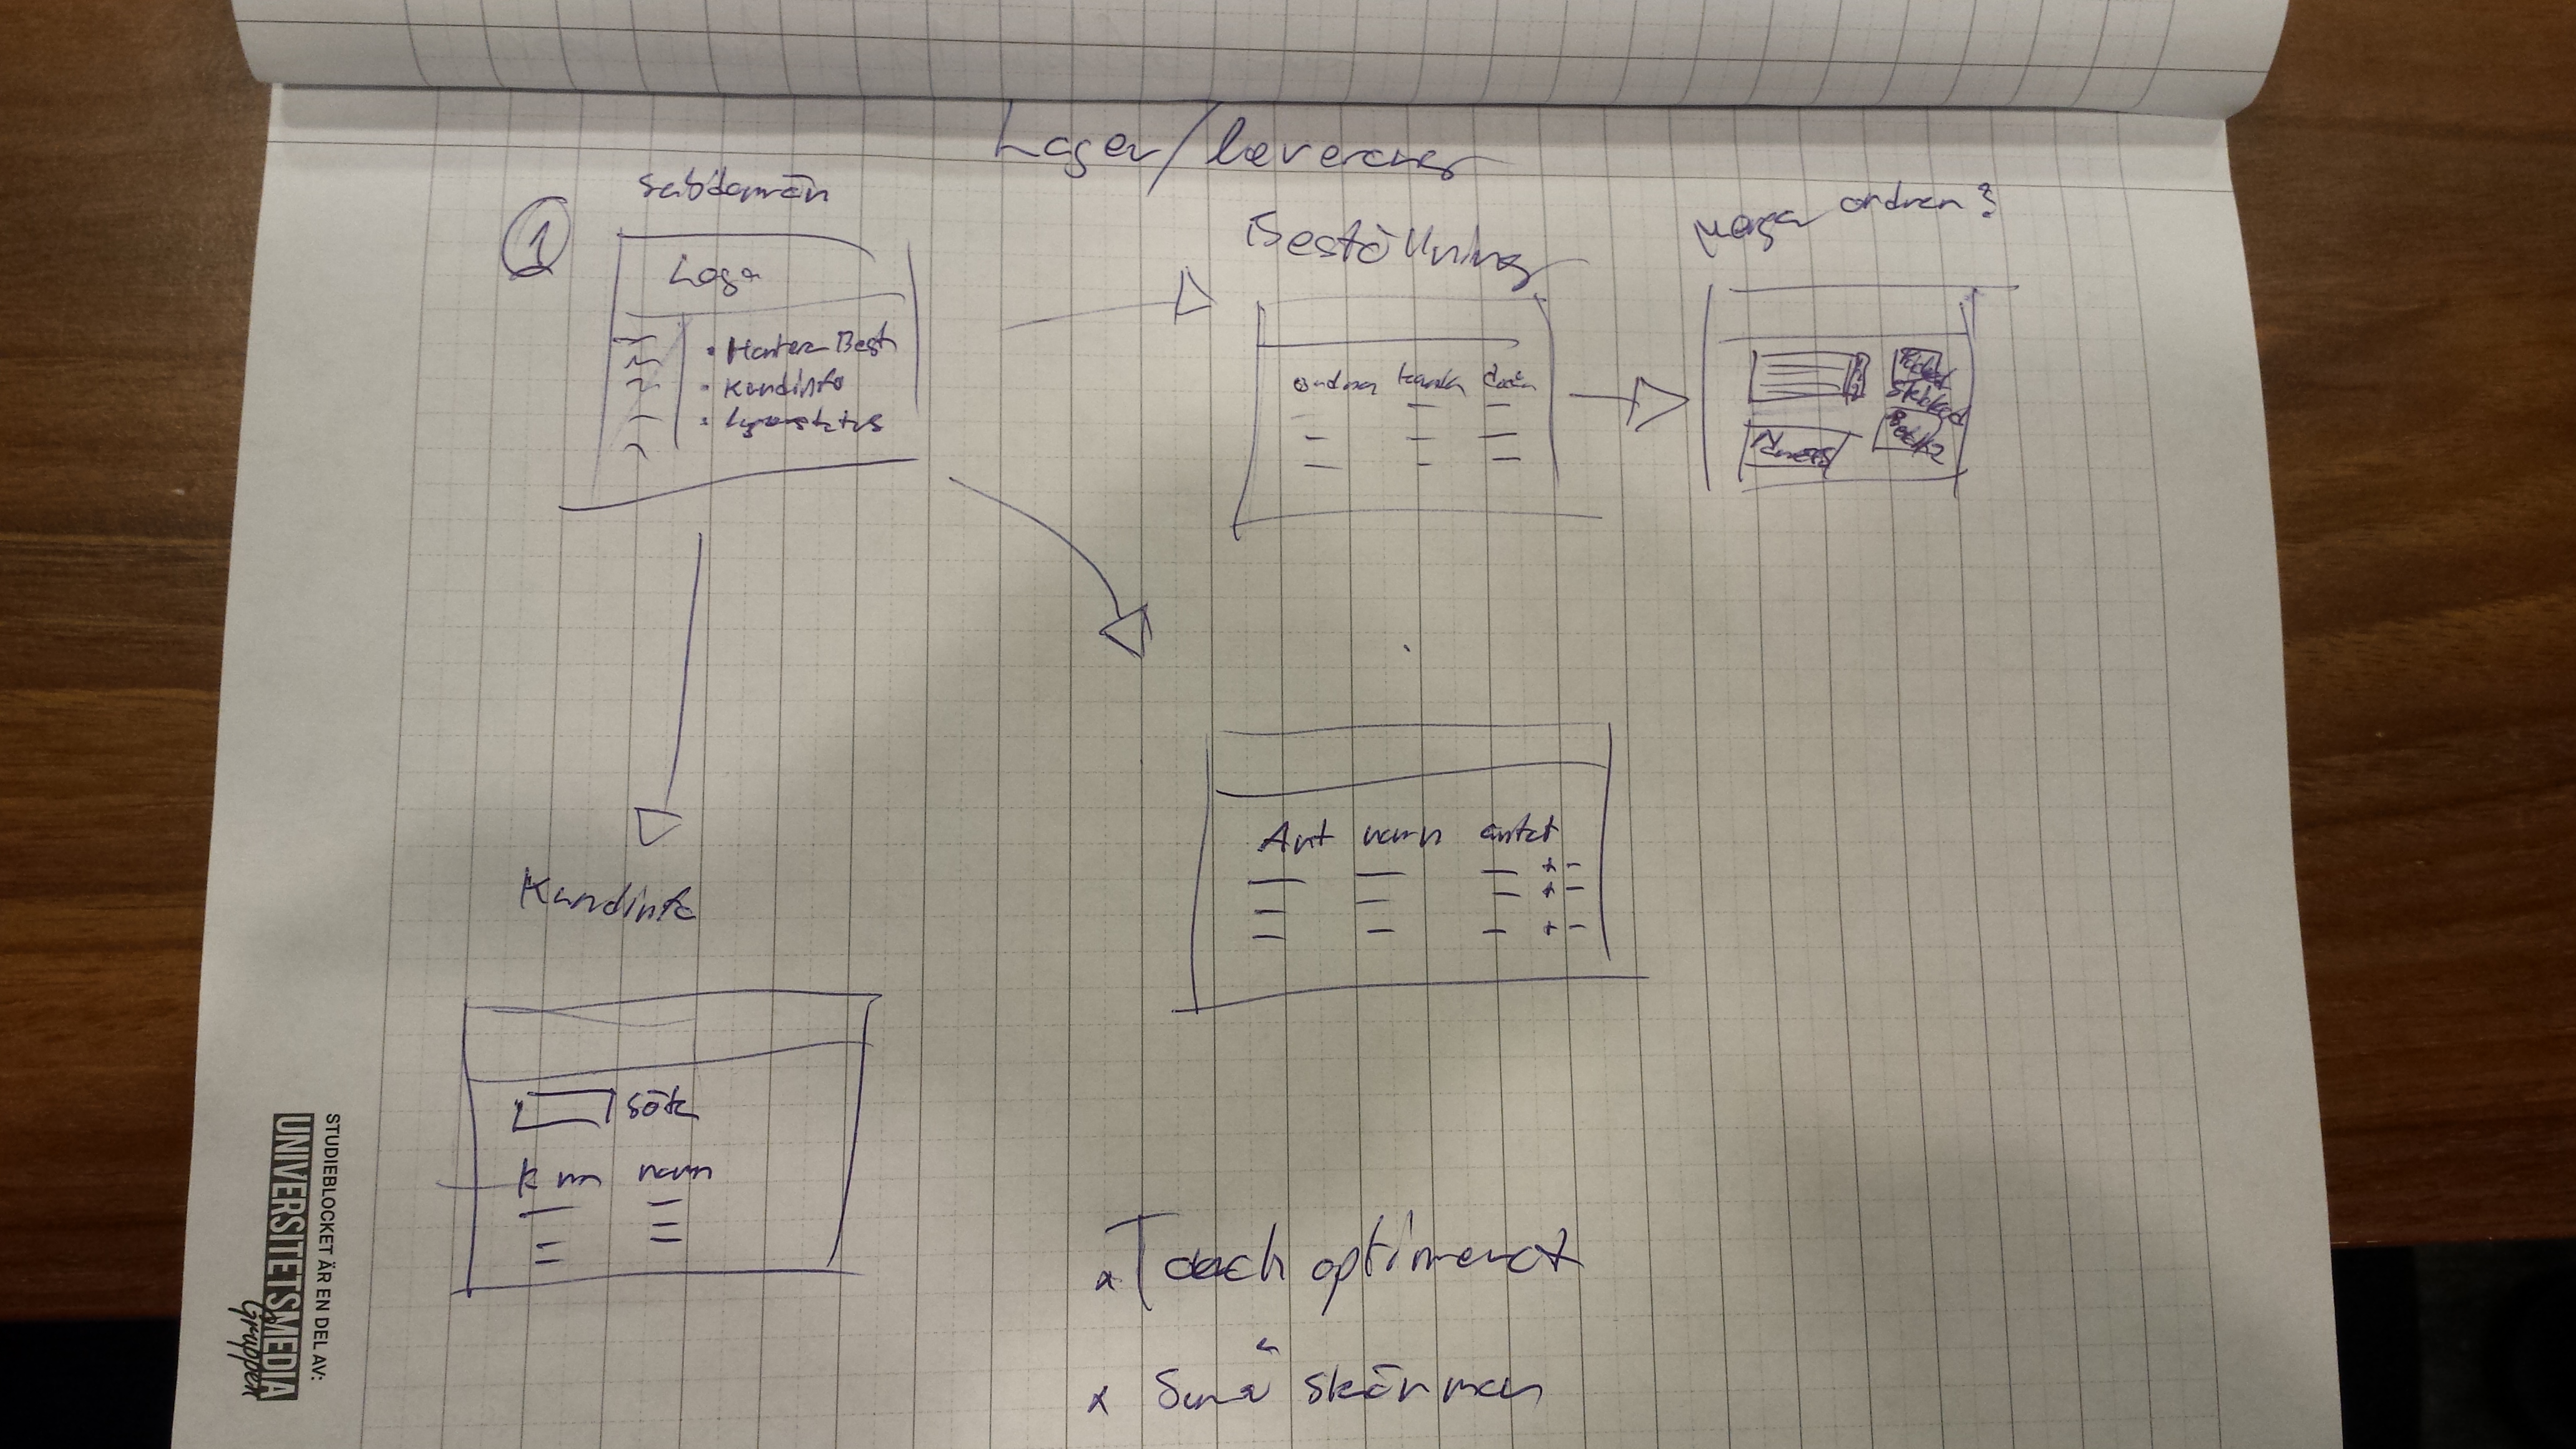 Lager/leverans
subdomän
1
Loga
· Hantera Best
· Kundinfo
· Lagerstatus
Beställning
ordrar kund datum
ordren?
Art namn antal
+ -
+ -
+ -
Kundinfo
sök
K nr namn
x Toach optimerat
x Små skärmar
STUDIEBLOCKET ÄR EN DEL AV:
UNIVERSITETSMEDIA
Gruppen